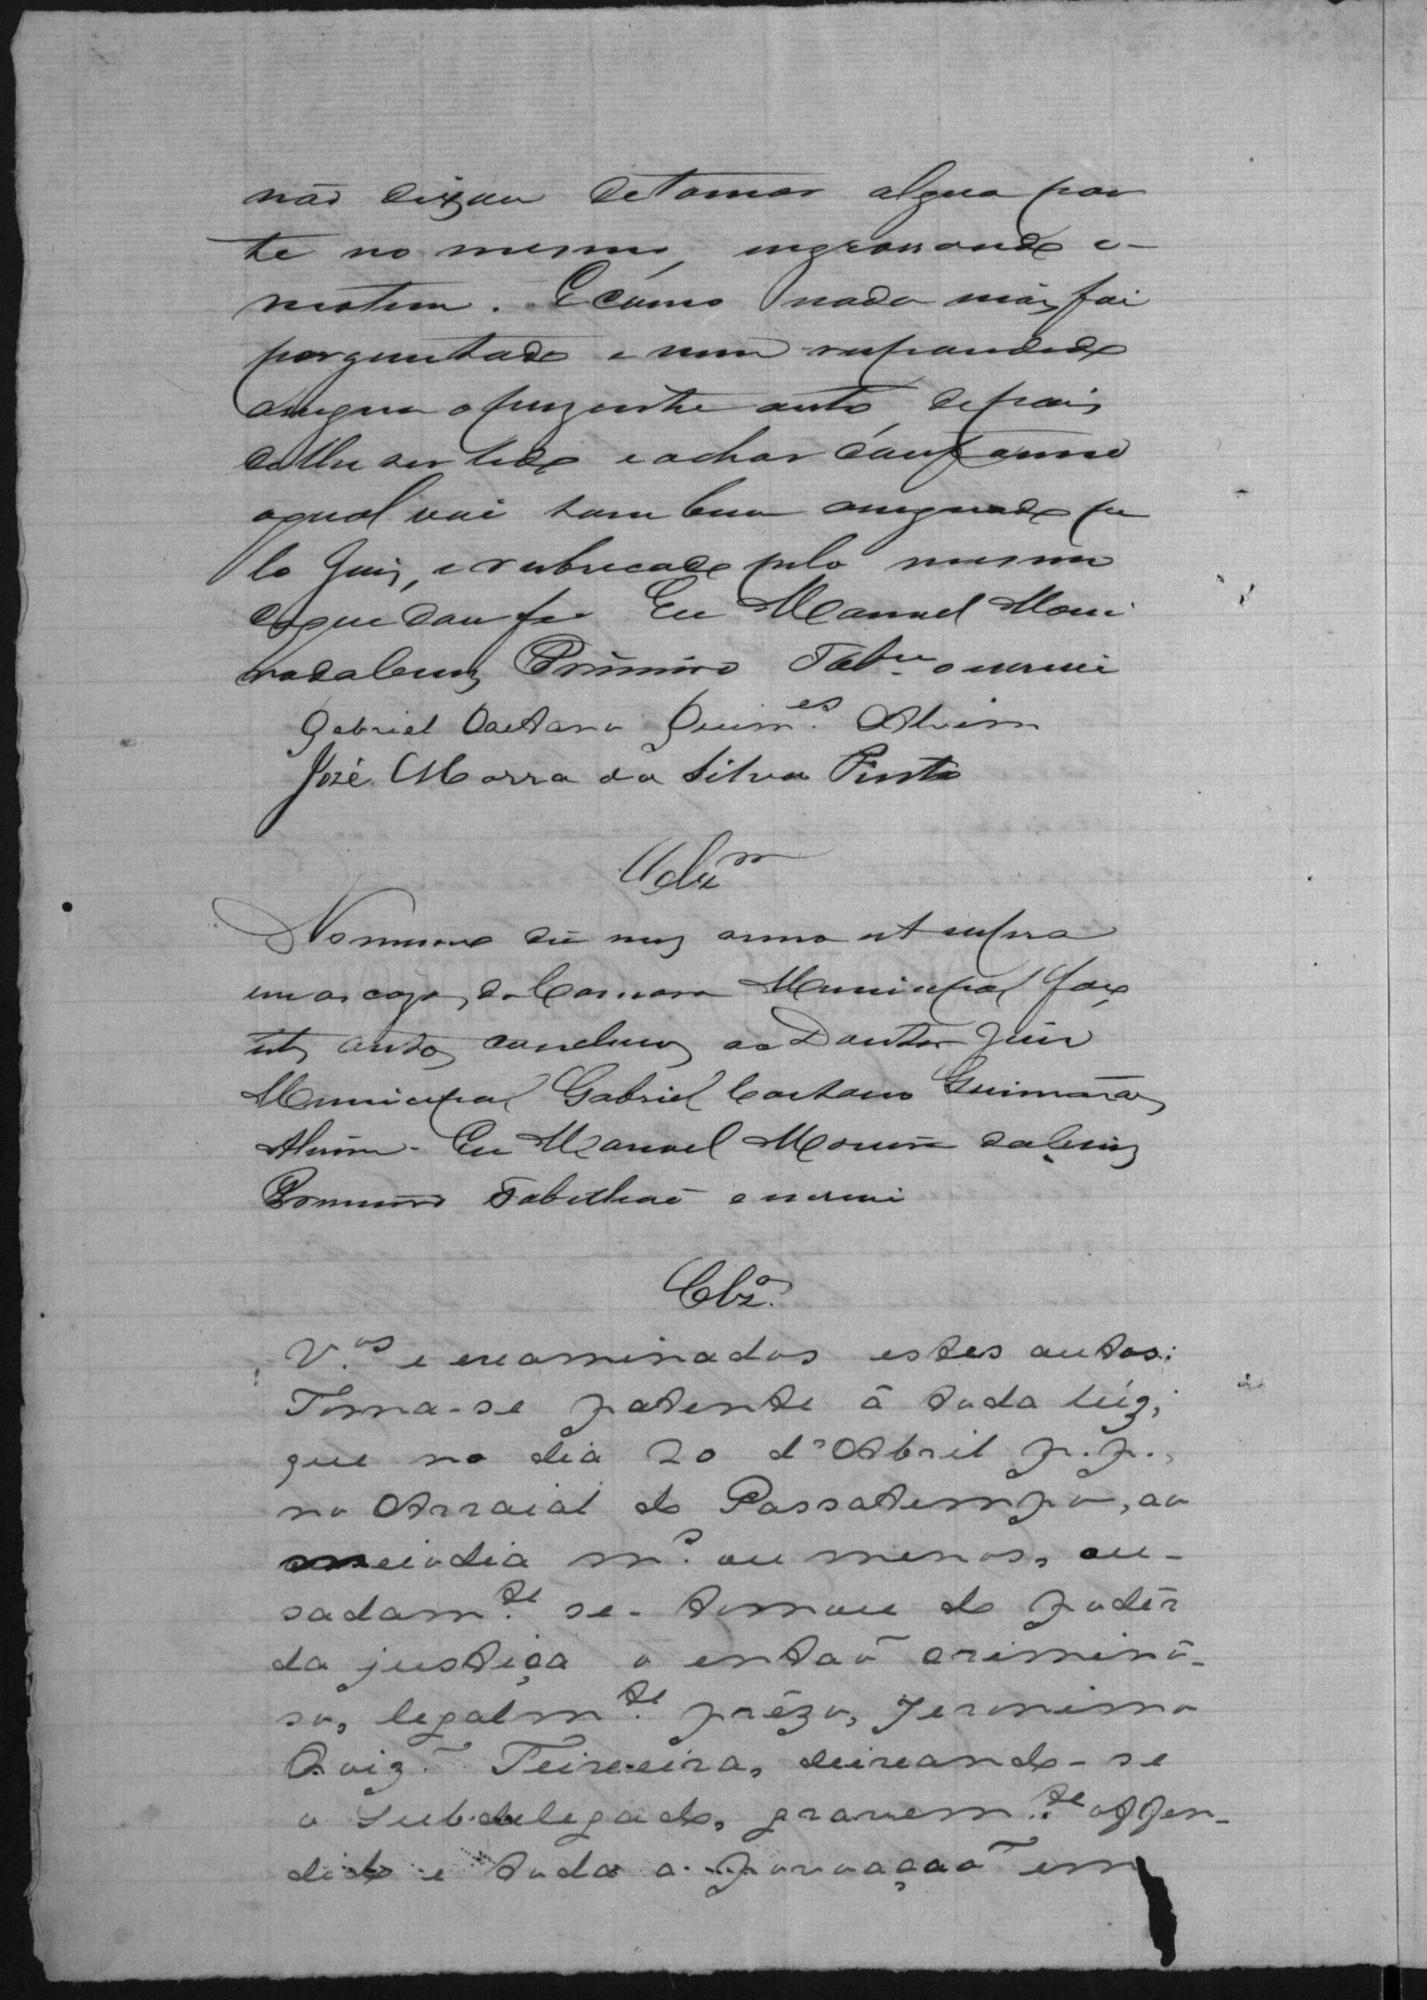 não deixou de tomar algua par
te no mesmo, engrossando o
motim. E como nada mais foi
perguntado e nem respondido
assigna o prezente auto depois
de lhe ser lido e achar conforme
o qual vai tambem assignado pe
lo Juis, e rubricado pelo mesmo
do que dou fe Eu Manoel Morei
ra da Cruz Primeiro Tab.am o escrevi
Gabriel Caetano Guim.es Alvim
José Marra da Silva Pinto
Clz.m
No mesmo dia mes anno ut supra
em as cazas da Camara Municipal faço
estes autos concluzos ao Doutor Juis
Municipal Gabriel Caetano Guimarães
Alvim. Eu Manoel Moreira da Cruz
Primeiro Tabelliaõ o escrevi
Clz.o
V.os e examinados estes autos:
Torna-se patente á toda lúz,
que no dia 20 d'Abril p.p.,
no Arraial do Passatempo, ao
meio dia m.s ou menos, ou-
sadam.te se tomou do podêr
da justiça o entaõ criminô-
so, legalm.te prêzo, Jeronimo
Teixeira, deixando-se
o Subdelegado, gravem.te offen-
dido e toda a povoaçaõ em